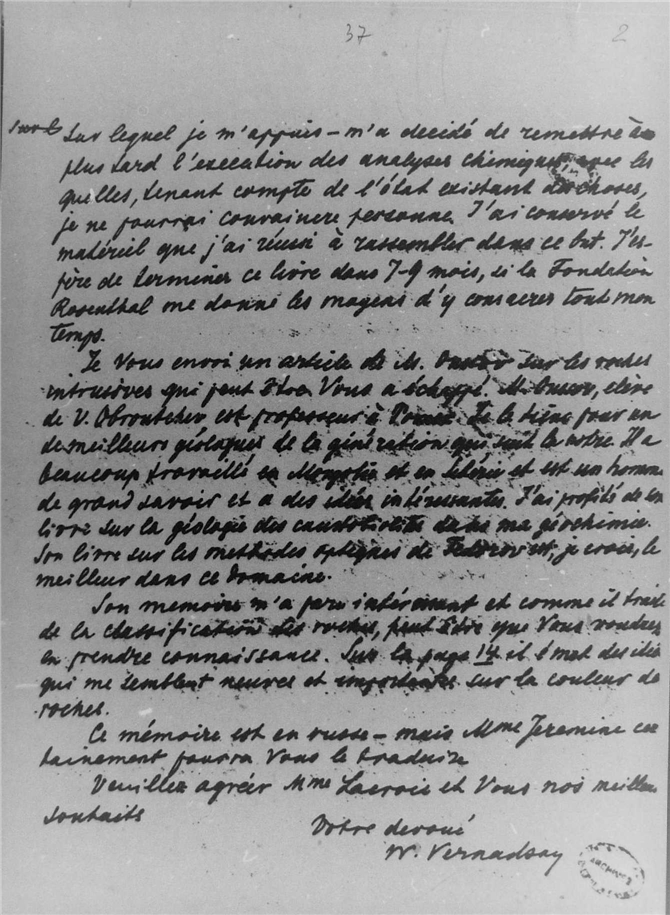 37 2
sur le sur lequel je m'appuis – m'a decidé de remettre à
plus tard l'execution des analyses chimiques avec les
quelles, tenant compte de l'état existant des choses,
je ne pourrai convaincre personne. J'ai conservé le
matéreil que j'ai réussi à rassembler dans ce but. J'es-
père de terminer ce livre dans 7-9 mois, si la Fondation
Rosenthal me donne les moyens d'y consacrer tout mon
temps.
Je Vous envoi un article de M. sur les roches
intrusives qui peut être Vous a échappé. M. elève
de V. Obroutchev est professeur à Je le tiens pour un
de meilleurs géologues de la génération qui suit la notre. Il a
beaucoup travaillé en Mongolie et en Sibérie et est un homme
de grand savoir et a des idées intéressantes. J'ai profité de son
livre sur la géologie des dans ma géochimie.
Son livre sur les methodes optiques de Fedorov est, je crois, le
meilleur dans ce domaine.
Son memoire m'a paru intéressant et comme il traite
de la classification des roches, peut être que Vous voudrez
en prendre connaissance. Sur la page 14 il émet des idées
qui me semblent neuves et importantes sur la couleur de
roches.
Ce mémoire est en russe – mais Mme Jeremine cer
tainement pourra Vous le traduire
Veuillez agréer Mme Lacroix et Vous nos meilleurs
souhaits
Votre devoué
W. Vernadsky
ARCHIVES